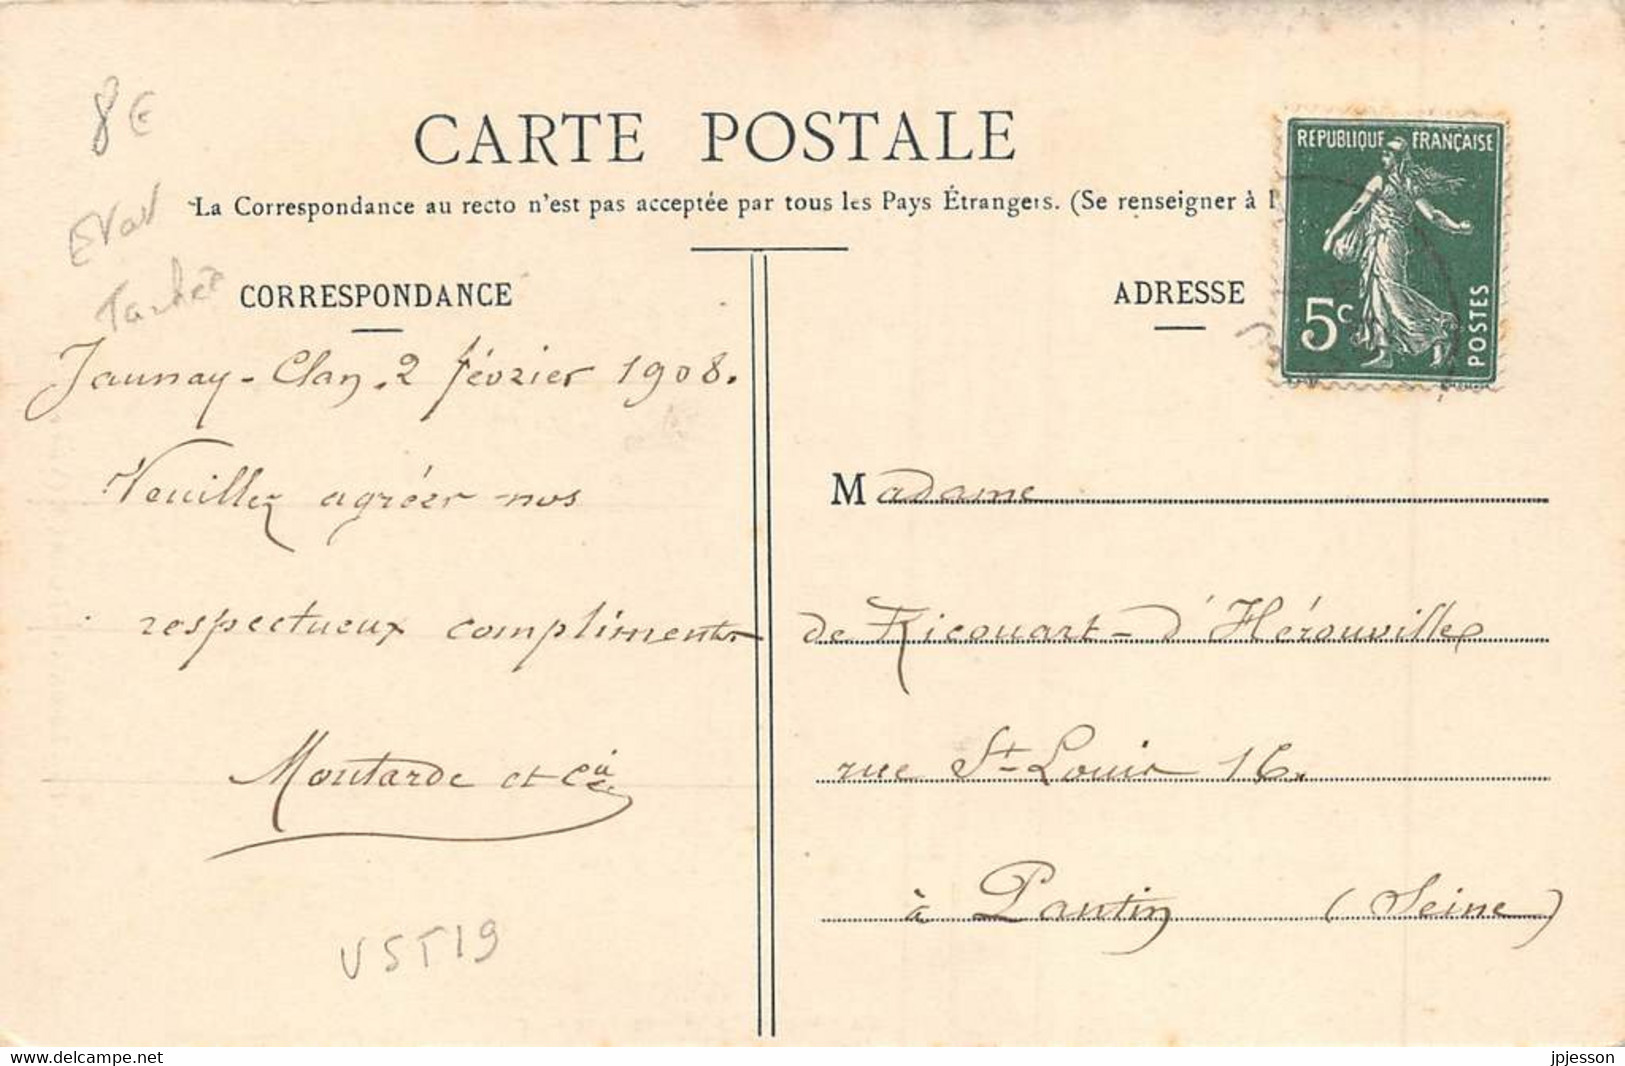 8 €
CARTE POSTALE
REPUBLIQUE FRANÇAISE
La Correspondance au recto n'est pas acceptée par tous les Pays Étrangers. (Se renseigner à l
5c
POSTES
CORRESPONDANCE
ADRESSE
Jaunay-Clan, 2 février 1908.
Veuillez agréer nos
respectueux compliments
Moutarde et Cie
VST19
Madame
de Ricouart-d'Hérouville
rue St-Louis 16.
à Pantin (Seine)
delcampe.net
jpjesson